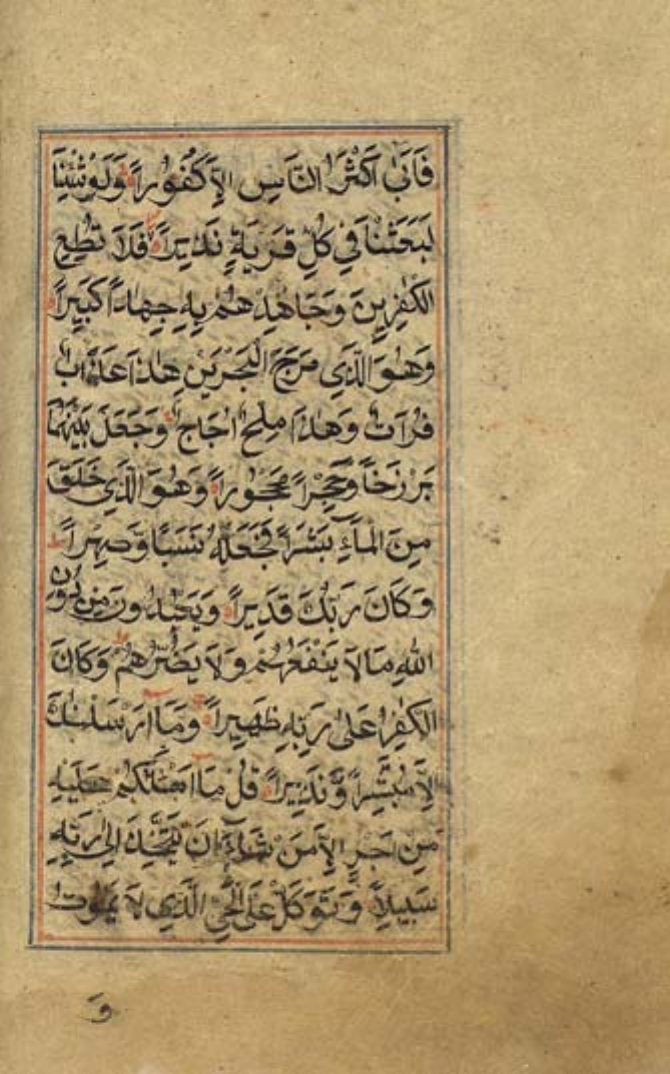 فَاَبٰى اَكْثَرُ النَّاسِ اِلَّا كُفُوْرًا وَلَوْ شِئْنَا
لَبَعَثْنَا فِي كُلِّ قَرْيَةٍ نَذِيْرًا فَلَا تُطِعِ
الْكٰفِرِيْنَ وَجَاهِدْهُمْ بِهٖ جِهَادًا كَبِيْرًا
وَهُوَ الَّذِي مَرَجَ الْبَحْرَيْنِ هٰذَا عَذْبٌ
فُرَاتٌ وَهٰذَا مِلْحٌ اُجَاجٌ وَجَعَلَ بَيْنَهُمَا
بَرْزَخًا وَّحِجْرًا مَحْجُوْرًا وَهُوَ الَّذِي خَلَقَ
مِنَ الْمَآءِ بَشَرًا فَجَعَلَهٗ نَسَبًا وَّصِهْرًا
وَكَانَ رَبُّكَ قَدِيْرًا وَيَعْبُدُوْنَ مِنْ دُوْنِ
اللّٰهِ مَالَا يَنْفَعُهُمْ وَلَا يَضُرُّهُمْ وَكَانَ
الْكٰفِرُ عَلٰى رَبِّهٖ ظَهِيْرًا وَمَا اَرْسَلْنٰكَ
اِلَّا مُبَشِّرًا وَّنَذِيْرًا قُلْ مَا اَسْئَلُكُمْ عَلَيْهِ
مِنْ اَجْرٍ اِلَّا مَنْ شَآءَ اَنْ يَتَّخِذَ اِلٰى رَبِّهٖ
سَبِيْلًا وَتَوَكَّلْ عَلَى الْحَيِّ الَّذِي لَا يَمُوْتُ
وَ